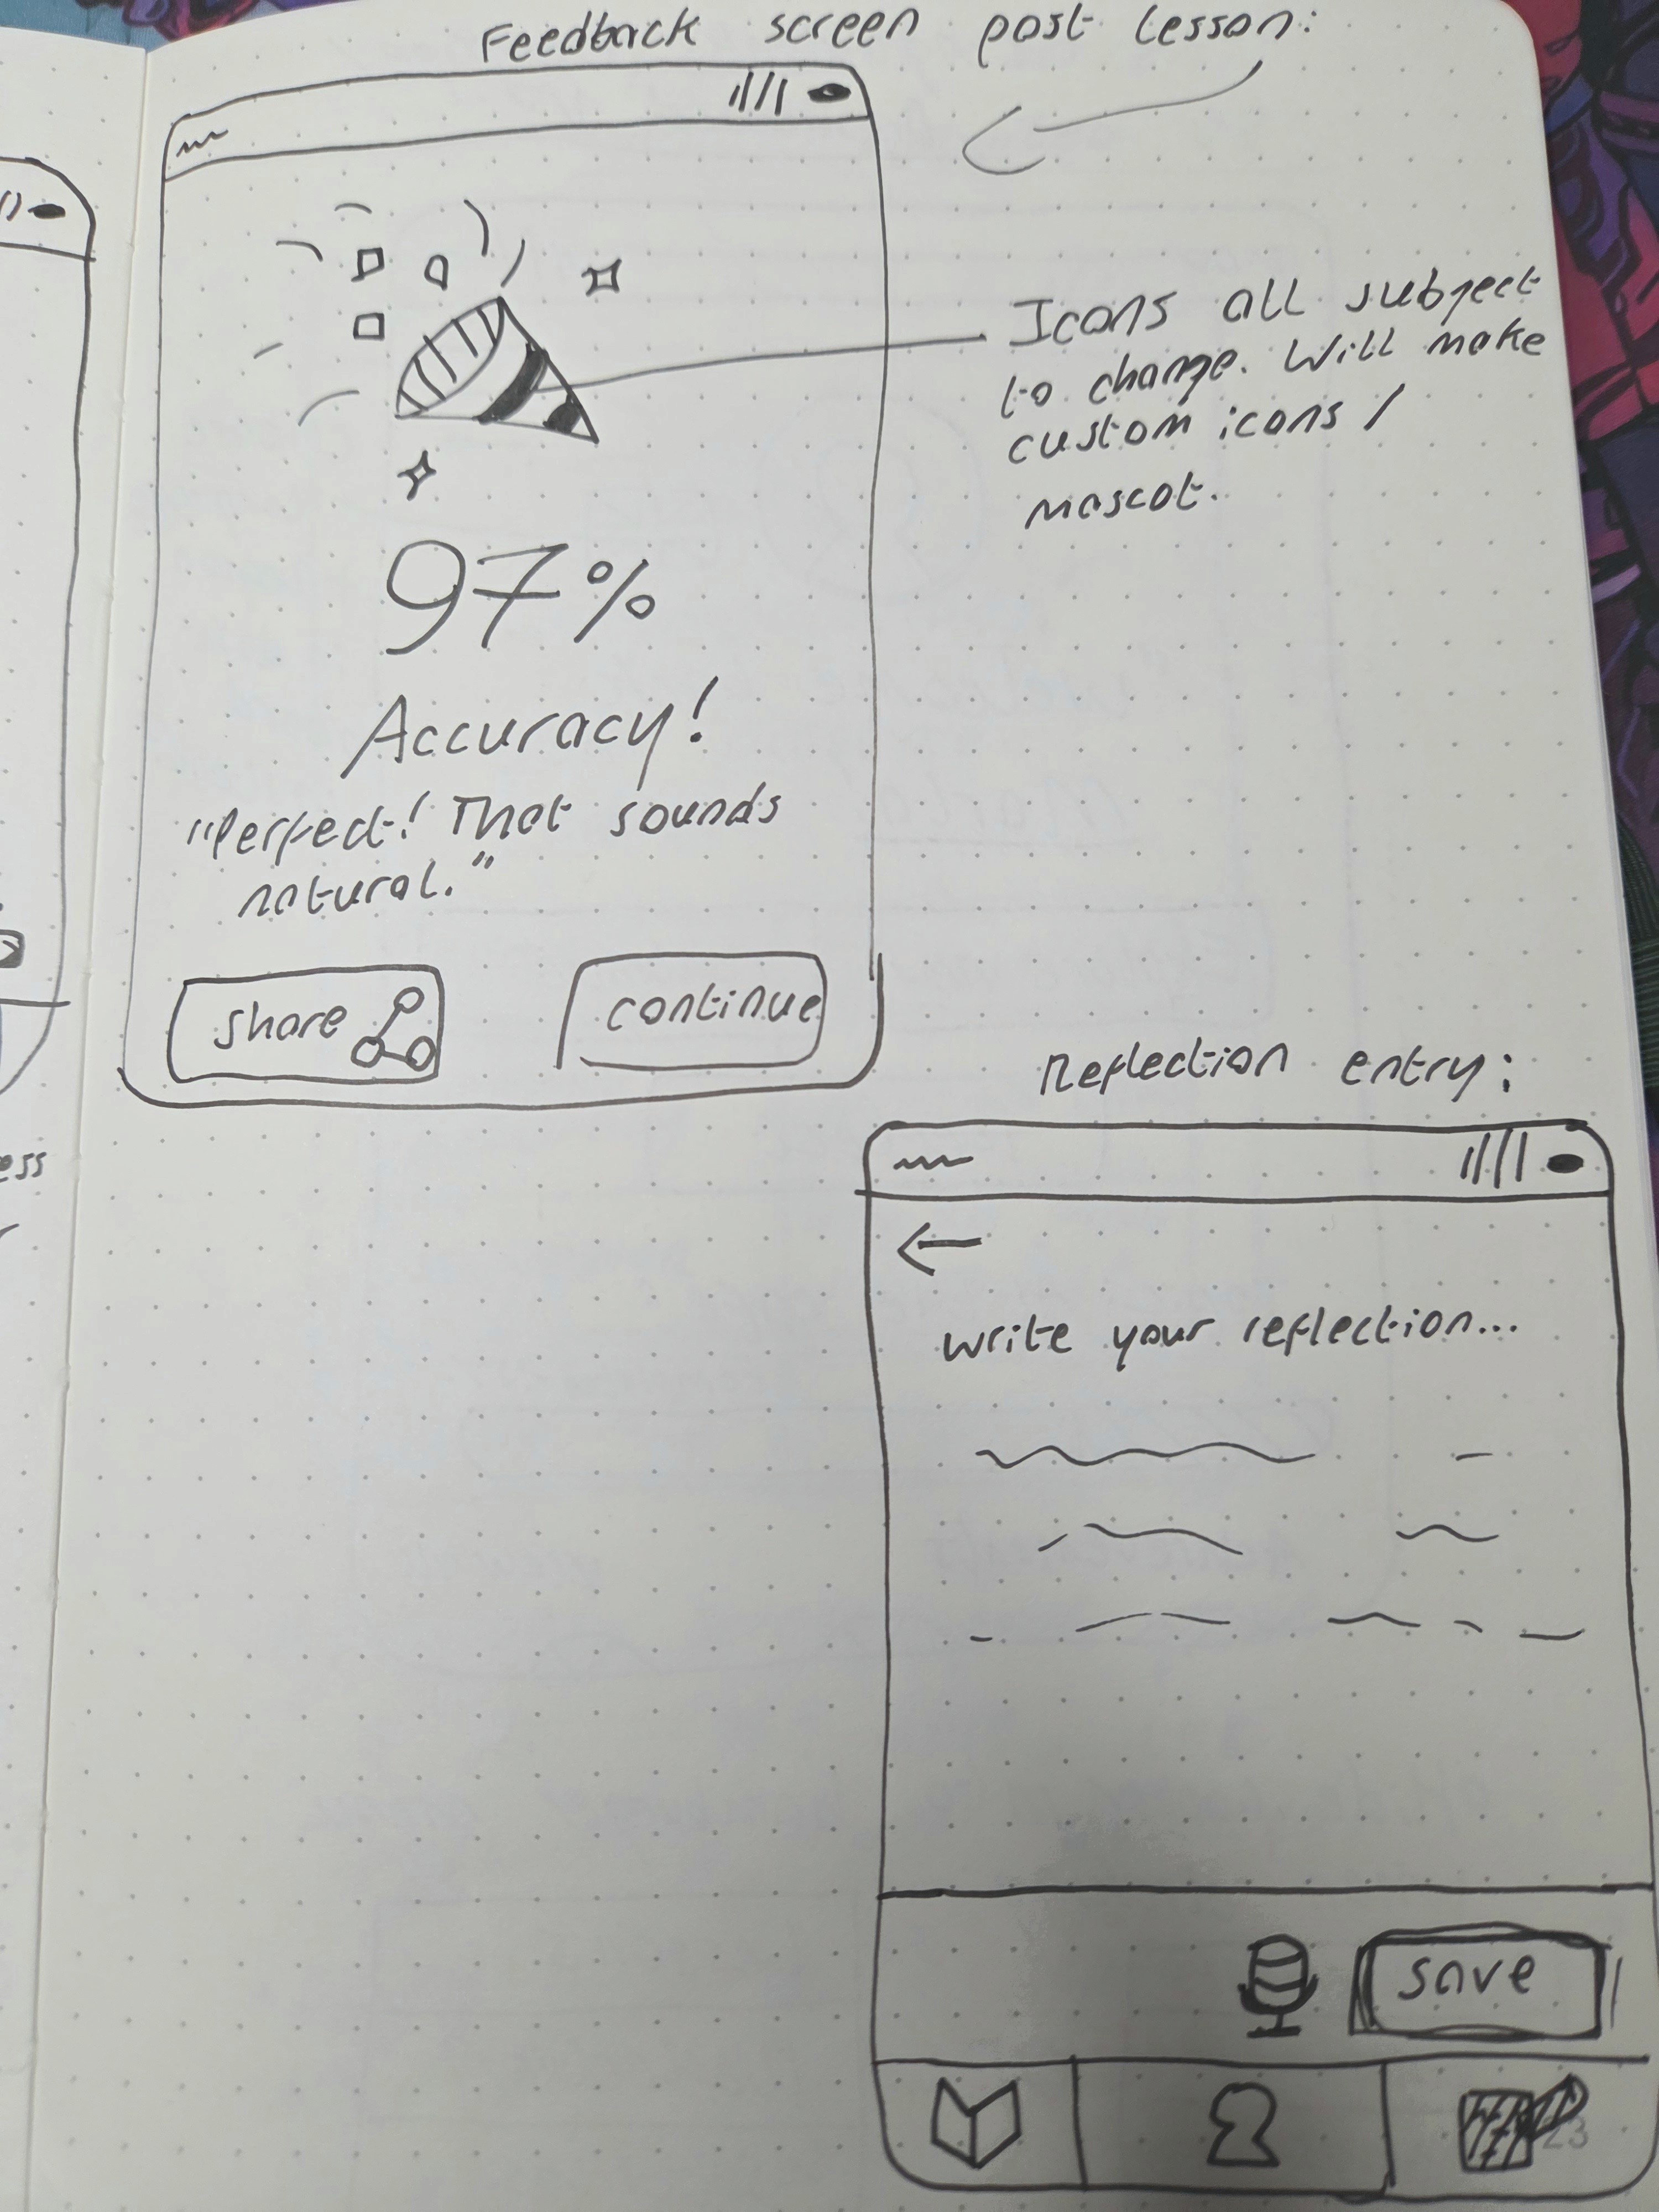 Feedback screen post lesson:
Icons all subject
to change. Will make
custom icons /
mascot.
97%
Accuracy!
"Perfect! That sounds
natural."
share
continue
ess
Reflection entry:
write your reflection...
save
23